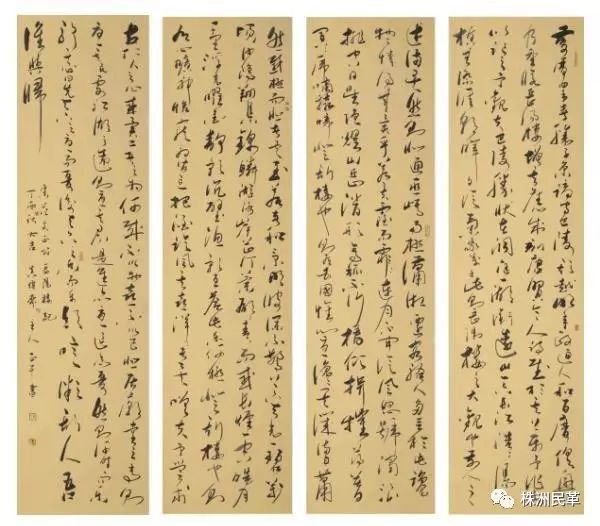 慶曆四年春滕子京謫守巴陵郡越明年政通人和百廢俱興
乃重修岳陽樓增其舊制刻唐賢今人詩賦於其上屬予作文
以記之予觀夫巴陵勝狀在洞庭一湖銜遠山吞長江浩浩湯
湯橫無際涯朝暉夕陰氣象萬千此則岳陽樓之大觀也前人之
述備矣然則北通巫峽南極瀟湘遷客騷人多會於此覽
物之情得無異乎若夫霪雨霏霏連月不開陰風怒號濁浪
排空日星隱耀山岳潛形商旅不行檣傾楫摧薄暮
冥冥虎嘯猿啼登斯樓也則有去國懷鄉憂讒畏譏滿目蕭
然感極而悲者矣至若春和景明波瀾不驚上下天光一碧萬
頃沙鷗翔集錦鱗游泳岸芷汀蘭郁郁青青而或長煙一空皓月
千里浮光躍金靜影沉璧漁歌互答此樂何極登斯樓也則有
心曠神怡寵辱偕忘把酒臨風其喜洋洋者矣嗟夫予嘗求
古仁人之心或異二者之為何哉不以物喜不以己悲居廟堂之高則
憂其民處江湖之遠則憂其君是進亦憂退亦憂然則何時而樂
耶其必曰先天下之憂而憂後天下之樂而樂乎噫微斯人吾
誰與歸
岳陽樓記
丁酉秋 主人 書
株洲民革